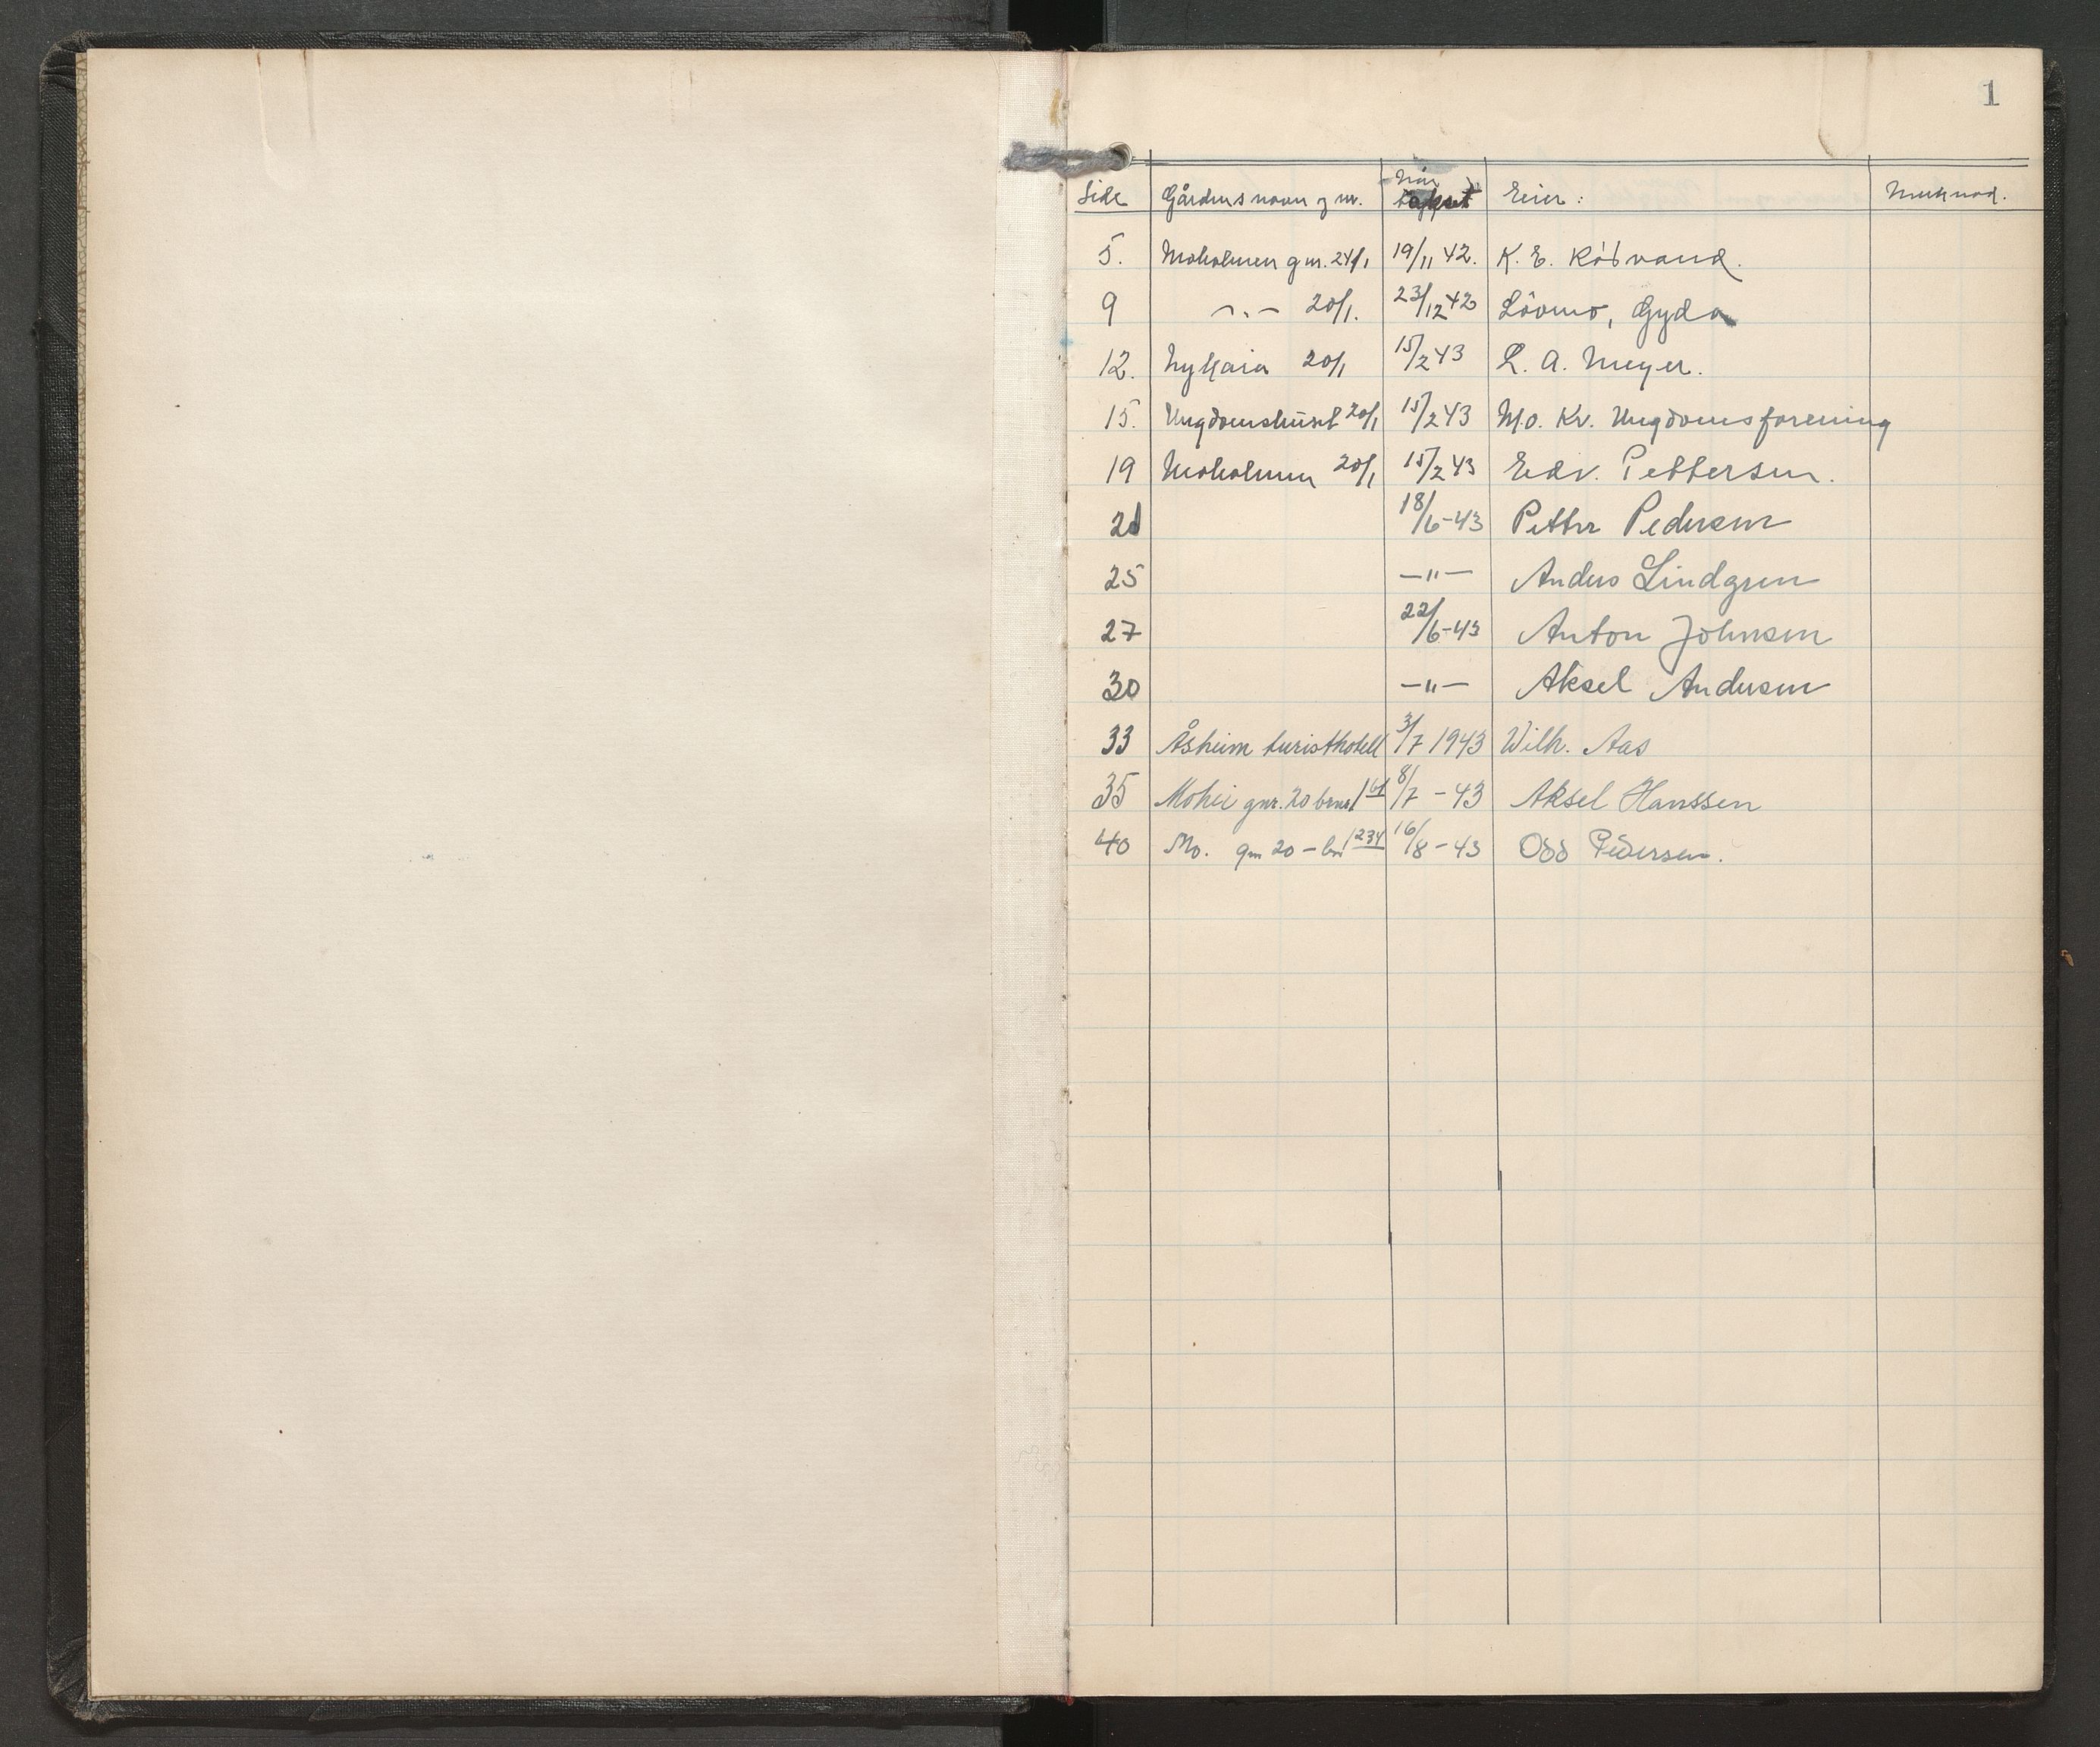 1
Side Gårdens navn og nr. Når takset Eier: Merknad.
5. Moholmen gnr. 24/1 19/11 42. K. E. Rösvand.
9 -"- 20/1. 23/12 42 Lövmo, Gyda
12. Nykaia 20/1 15/2 43 L. A. Meyer.
15. Ungdomshuset 20/1 15/2 43 Mo. Kr. Ungdomsforening
19 Moholmen 20/1 15/2 43 Edv. Pettersen.
21 18/6-43 Petter Pedersen
25 -"- Anders Lindgren
27 22/6-43 Anton Johnsen
30 -"- Aksel Andersen
33 Åsheim turisthotell 3/7 1943 Wilh. Aas
35 Mohei gnr. 20 brnr. 1/61 8/7 - 43 Aksel Hanssen
40 Mo. gnr 20 - bnr 1/234 16/8 - 43 Odd Pedersen.